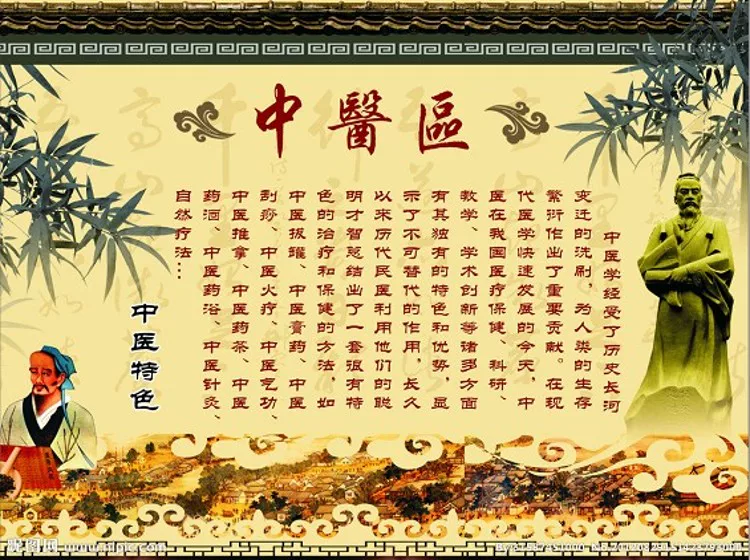 中醫區
中医学经受了历史长河
变迁的洗刷，为人类的生存
繁衍作出了重要贡献。在现
代医学快速发展的今天，中
医在我国医疗保健、科研、
教学、学术创新等诸多方面
有其独有的特色和优势，显
示了不可替代的作用，长久
以来历代民医利用他们的聪
明才智总结出了一套很有特
色的治疗和保健的方法，如
中医拔罐、中医膏药、中医
刮痧、中医火疗、中医气功、
中医推拿、中医药茶、中医
药酒、中医药浴、中医针灸、
自然疗法…
中医特色